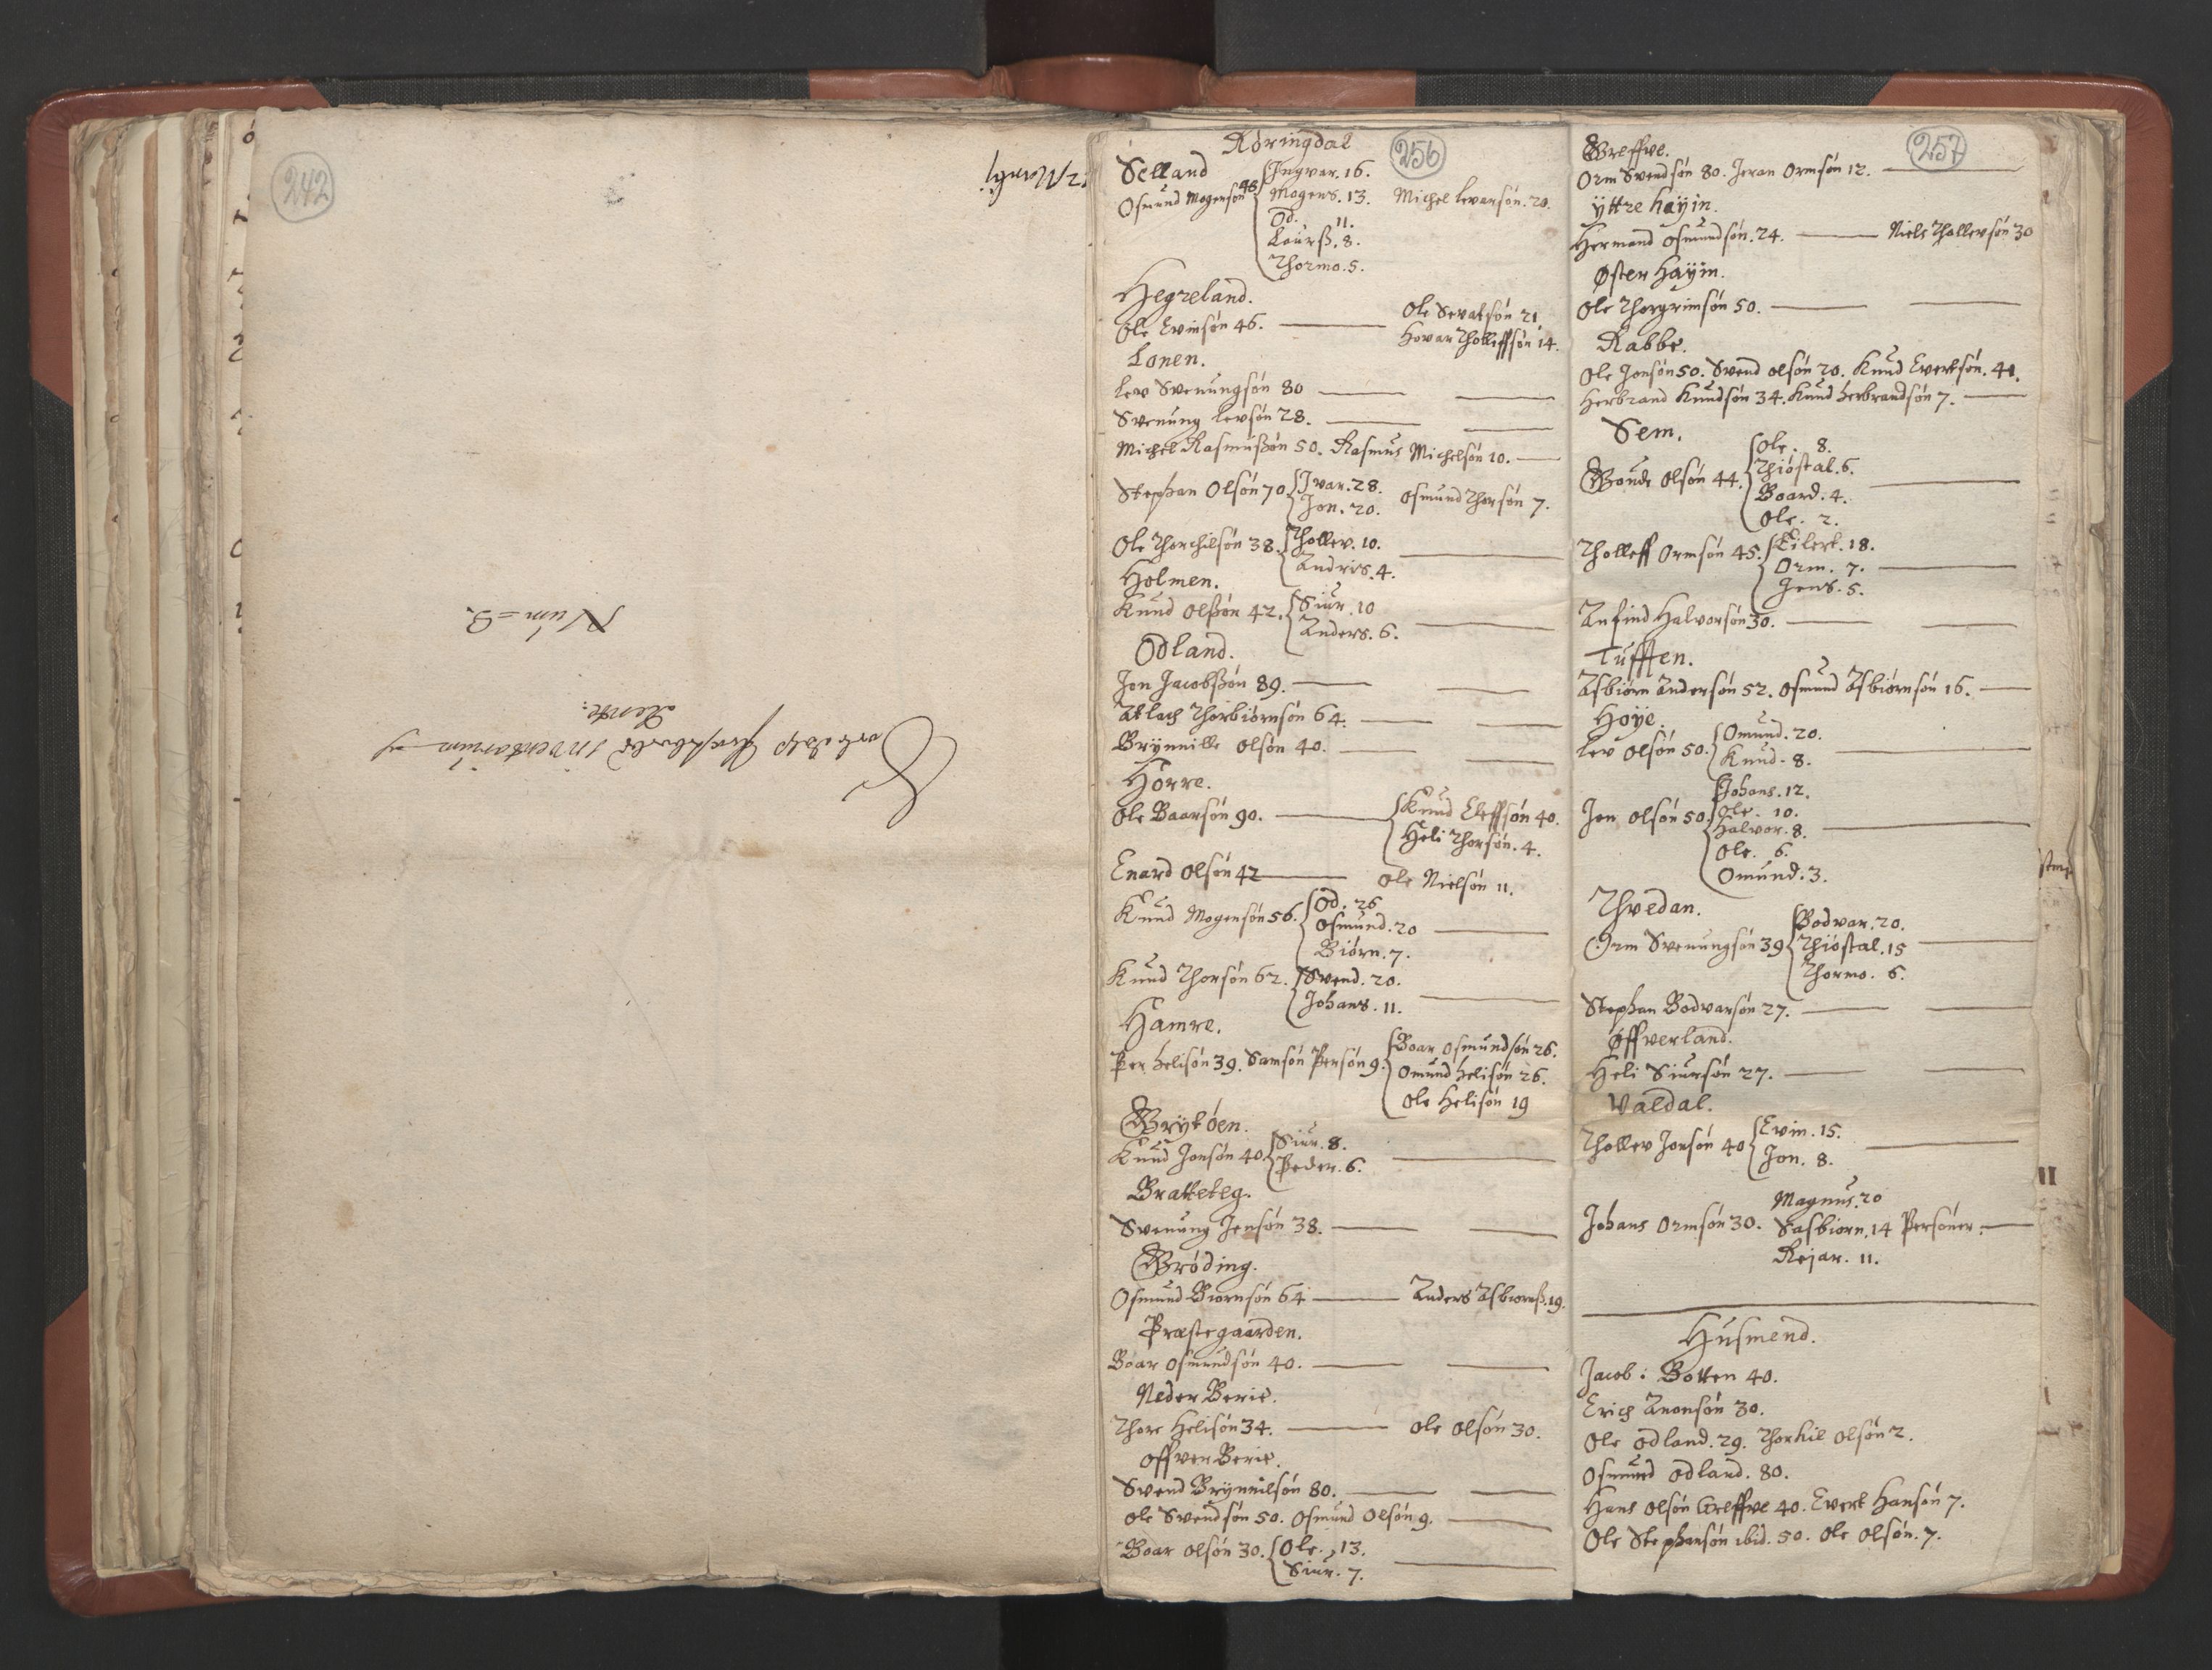 242
Num = 3.
256
Røringdal
Selland
Osmund Mogensøn 48 Ingvar. 16.
Mogens. 13. Michel Levarsøn. 20.
Od. 11.
Laurß. 8.
Thormo. 5.
Hegreland.
Ole Evinsøn 46. Ole Sevatsøn 21
Hovar Tholleffsøn 14.
Lonen.
Lev Svenungsøn 80
Svenung Levsøn 28.
Michel Rasmußøn 50. Rasmus Michelsøn 10.
Stephan Olsøn 70. Ivar. 28. Osmund Thorsøn 7.
Jon. 20.
Ole Thorchilsøn 38. Thollev. 10.
Andris. 4.
Holmen.
Knud Olßøn 42. Siur. 10
Anders. 6.
Odland.
Jon Jacobßøn 89.
Atlach Thorbiørnsøn 64.
Brynnille Olsøn 40.
Hørre.
Ole Baarsøn 90. Knud Eleffsøn 40.
Heli Thorsøn. 4.
Enard Olsøn 42 Ole Nielsøn 11.
Knud Mogensøn 56. Od. 26
Osmund. 20
Biørn. 7.
Knud Thorsøn 62. Svend. 20.
Johans. 11.
Hamre.
Per Helisøn 39. Samsøn Persøn 9. Boar Osmundsøn 26.
Omund Helisøn 26.
Ole Helisøn 19
Grytøen.
Knud Jonsøn 40. Siur. 8.
Peder. 6.
Bratteteg.
Svenung Jensøn 38.
Grøding.
Osmund Biørnsøn 64 Anders Asbiørnß. 19.
Præstegaarden.
Boar Osmundsøn 40.
Neder Berie.
Thore Helisøn 34. Ole Olsøn 30.
Offver Berie.
Svend Brynnilsøn 80.
Ole Svendsøn 50. Osmund Olsøn 9.
Boar Olsøn 30. Ole. 13.
Siur. 7.
257
Greffve.
Orm Svendsøn 80. Jeran Ormsøn 12.
Yttre Høyin.
Hermand Osmundsøn. 24. Niels Thollevsøn 30
Øster Høyin.
Ole Thorgrimsøn 50.
Rabbe.
Ole Jonsøn 50. Svend Olsøn 20. Knud Evertsøn. 41.
Herbrand Knudsøn 34. Knud Herbrandsøn 7.
Sem.
Gonde Olsøn 44. Ole. 8.
Thiøstal. 6.
Board. 4.
Ole. 2.
Tholleff Ormsøn 45. Eilert. 18.
Orm. 7.
Jens. 5.
Anfind Halvorsøn 30.
Tufften.
Asbiørn Andersøn 52. Osmund Asbiørnsøn 16.
Høye.
Lev Olsøn 50. Omund. 20.
Knud. 8.
Jon Olsøn 50. Johans. 12.
Ole. 10.
Halvor. 8.
Ole. 6.
Omund. 3.
Thvedan.
Orm Svenungsøn 39 Bodvar. 20.
Thiøstal. 15
Thormo. 6.
Stephan Bodvarsøn 27.
Øffverland.
Heli Siursøn 27.
Valdal.
Thollev Jonsøn 40 Evin. 15.
Jon. 8.
Johans Ormsøn 30. Magnus. 20
Sasbiørn. 14 Persøner.
Rejar. 11.
Husmend.
Jacob i Botten 40.
Erich Anonsøn 30.
Ole Odland. 29. Thorkil Olsøn 2.
Osmund Odland. 80.
Hans Olsøn Greffve 40. Evert Hansøn 7.
Ole Stephansøn ibid. 50. Ole Olsøn. 7.